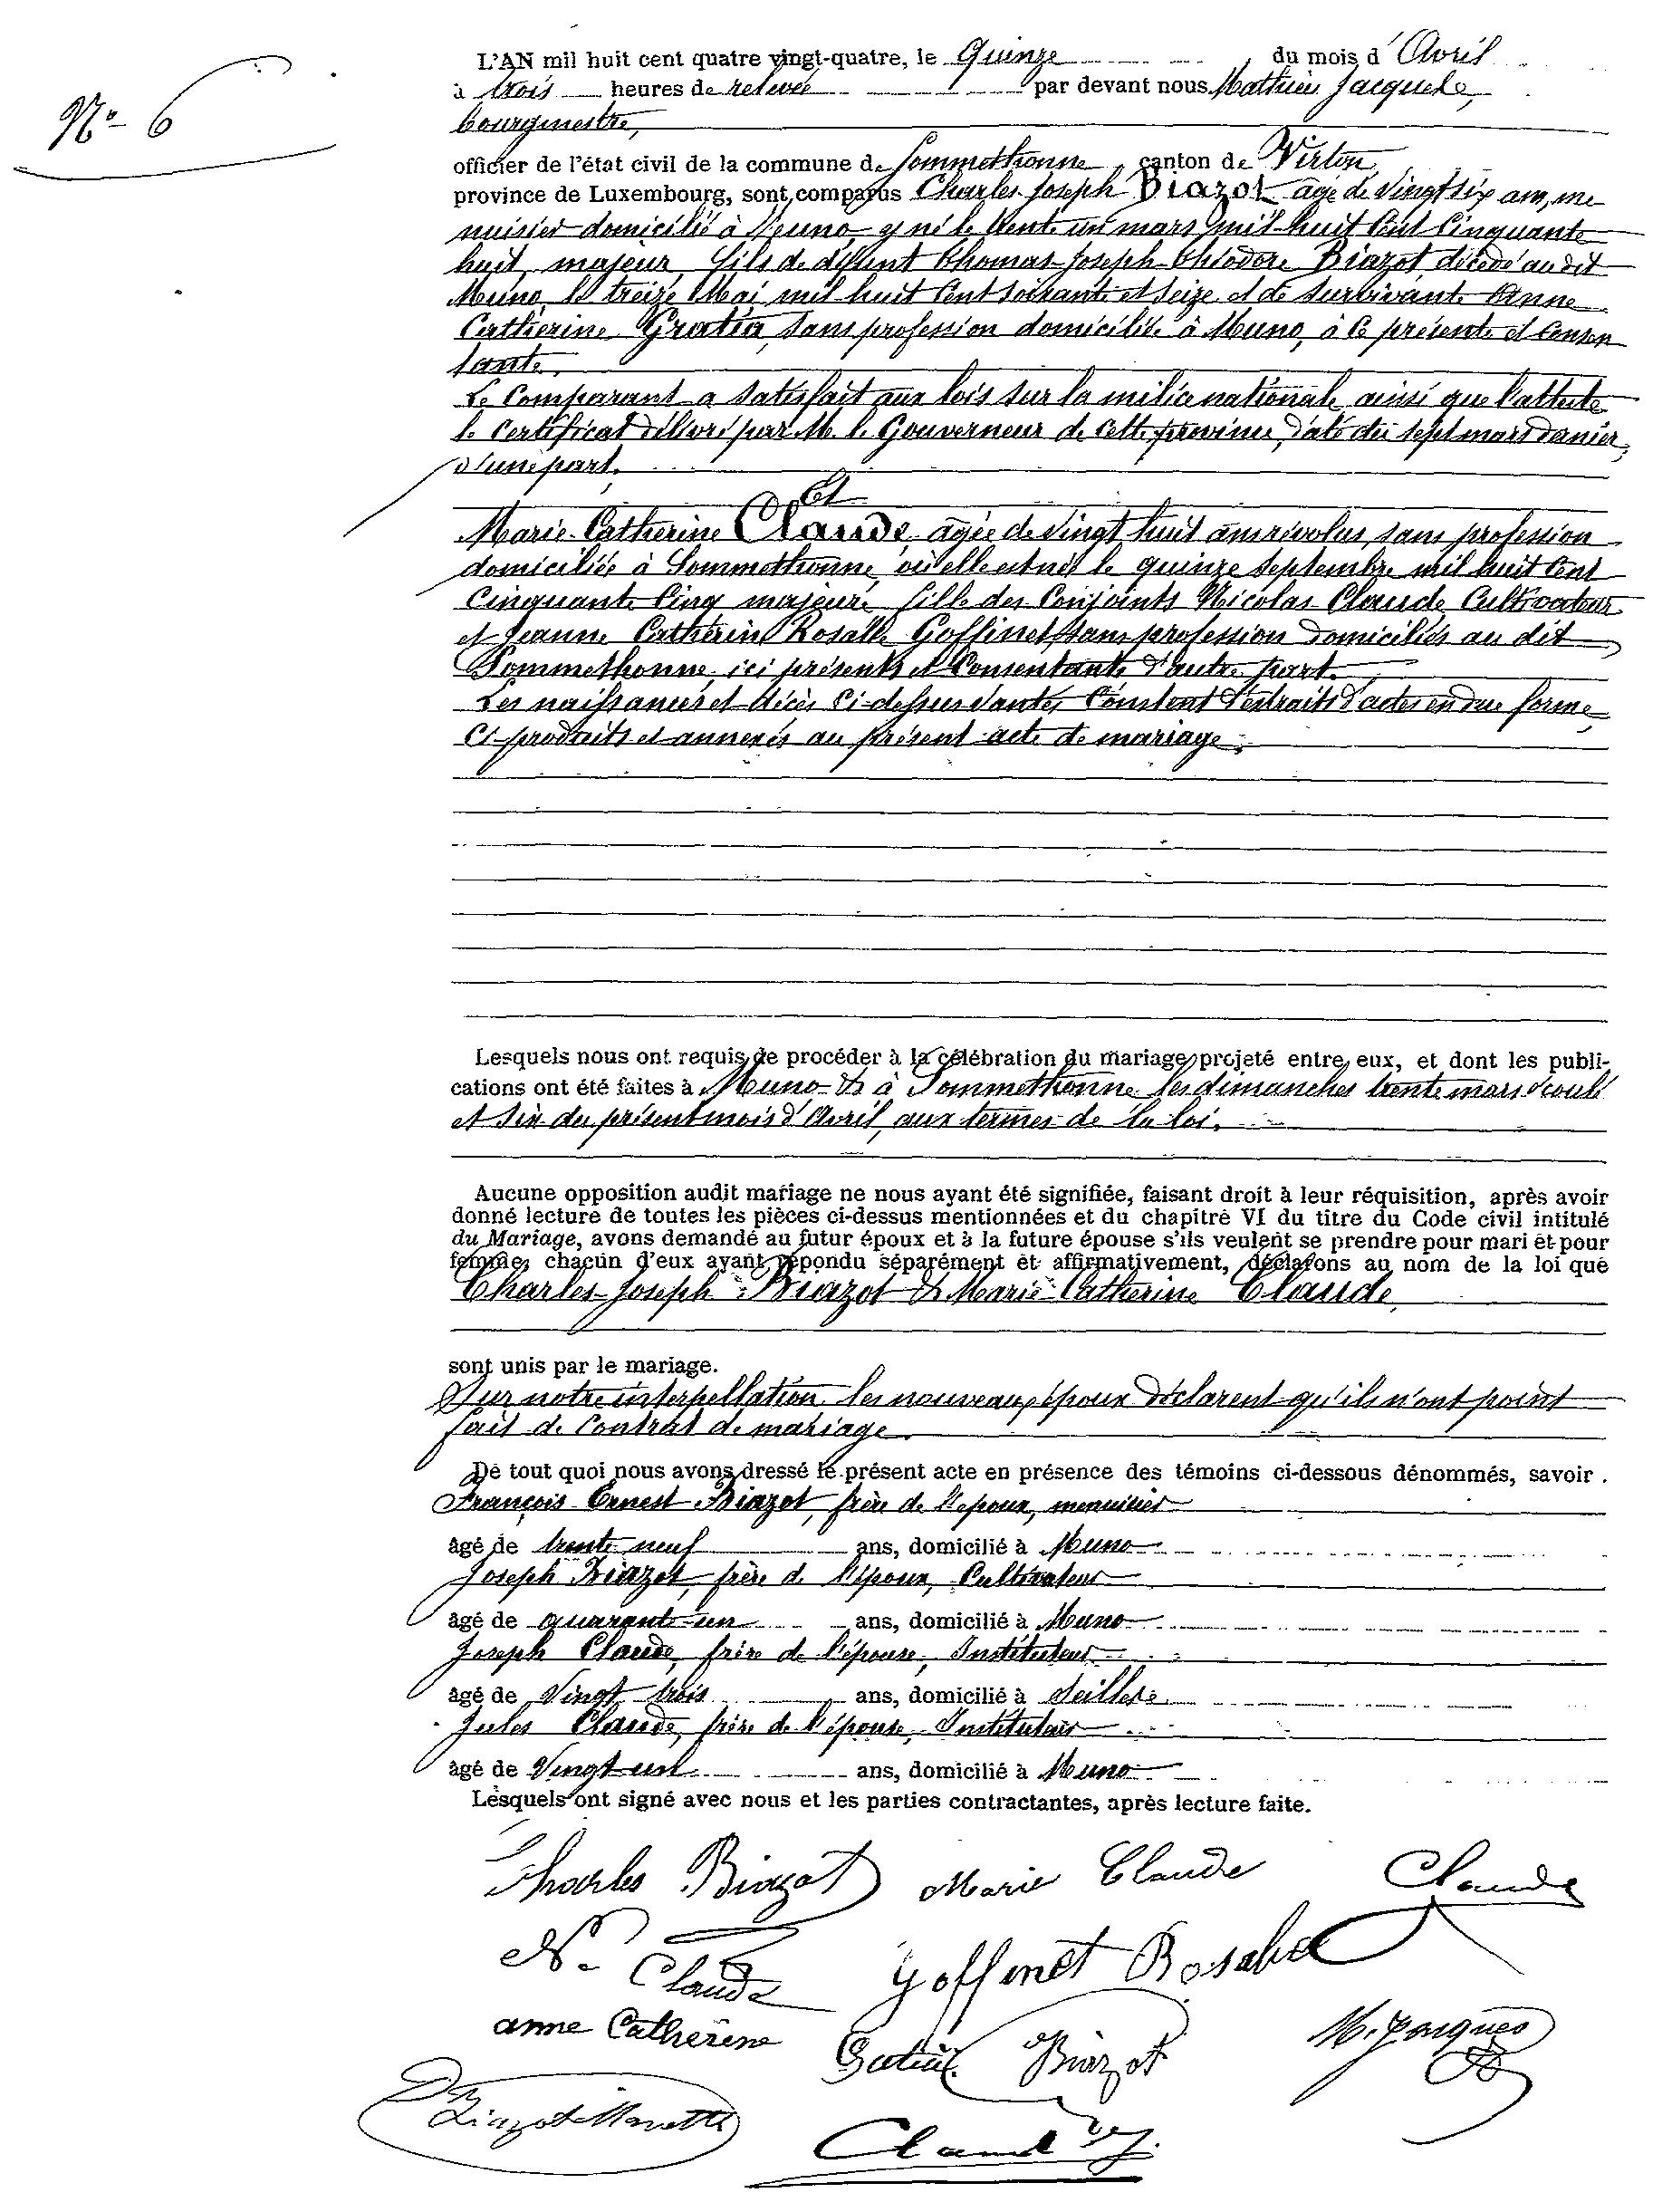 N° 6
L'AN mil huit cent quatre vingt-quatre, le Quinze du mois d'Avril
à trois heures de relevée par devant nous Mathieu Jacques,
bourgmestre,
officier de l'état civil de la commune de Sommethonne, canton de Virton,
province de Luxembourg, sont comparus Charles Joseph Biazot agé de vingt six ans, me
nuisier domicilié à Muno, y né le trente un mars mil huit Cent Cinquante
huit, majeur, fils de défunt Thomas-Joseph-Théodore Biazot, décédé au dit
Muno, le treize Mai mil huit Cent soixante et seize et de survivante Anne
Catherine Gratia, sans profession domiciliée à Muno, à ce présente et consen
tante.
Le Comparant a satisfait aux lois sur la milice nationale ainsi que l'atteste
le Certificat délivré par M. le Gouverneur de cette province, daté du sept mars dernier,
d'une part.
Et
Marie-Catherine Claude, agée de vingt huit ans révolus, sans profession
domiciliée à Sommethonne, où elle est née le quinze Septembre mil huit Cent
Cinquante Cinq, majeure, fille des Conjoints Nicolas Claude, Cultivateur
et Jeanne Catherine Rosalie Goffinet, sans profession domiciliés au dit
Sommethonne, ici présents et Consentants d'autre part.
Les naissances et décès Ci-dessus vantés Constent d'extraits d'actes en due forme
Ci-produits et annexés au présent acte de mariage.
Lesquels nous ont requis de procéder à la célébration du mariage projeté entre eux, et dont les publi-
cations ont été faites à Muno & à Sommethonne les dimanches trente mars écoulé
et six du présent mois d'Avril, aux termes de la loi.
Aucune opposition audit mariage ne nous ayant été signifiée, faisant droit à leur réquisition, après avoir
donné lecture de toutes les pièces ci-dessus mentionnées et du chapitre VI du titre du Code civil intitulé
du Mariage, avons demandé au futur époux et à la future épouse s'ils veulent se prendre pour mari et pour
femme, chacun d'eux ayant répondu séparément et affirmativement, déclarons au nom de la loi que
Charles-Joseph Biazot & Marie-Catherine Claude,
sont unis par le mariage.
Sur notre interpellation les nouveaux époux déclarent qu'ils n'ont point
fait de Contrat de mariage.
De tout quoi nous avons dressé le présent acte en présence des témoins ci-dessous dénommés, savoir.
François-Ernest Biazot, frère de l'époux, menuisier
âgé de trente neuf ans, domicilié à Muno
Joseph Biazot, frère de l'époux, Cultivateur
âgé de quarante-un ans, domicilié à Muno
Joseph Claude, frère de l'épouse, Instituteur
âgé de Vingt trois ans, domicilié à
Jules Claude, frère de l'épouse, Instituteur
âgé de Vingt-un ans, domicilié à Muno
Lesquels ont signé avec nous et les parties contractantes, après lecture faite.
Charles Biazot Marie Claude Claude
N. Claude Goffinet Rosalie
anne Catherene Gratia Biazot M. Jacques
Biazot
Claude J.